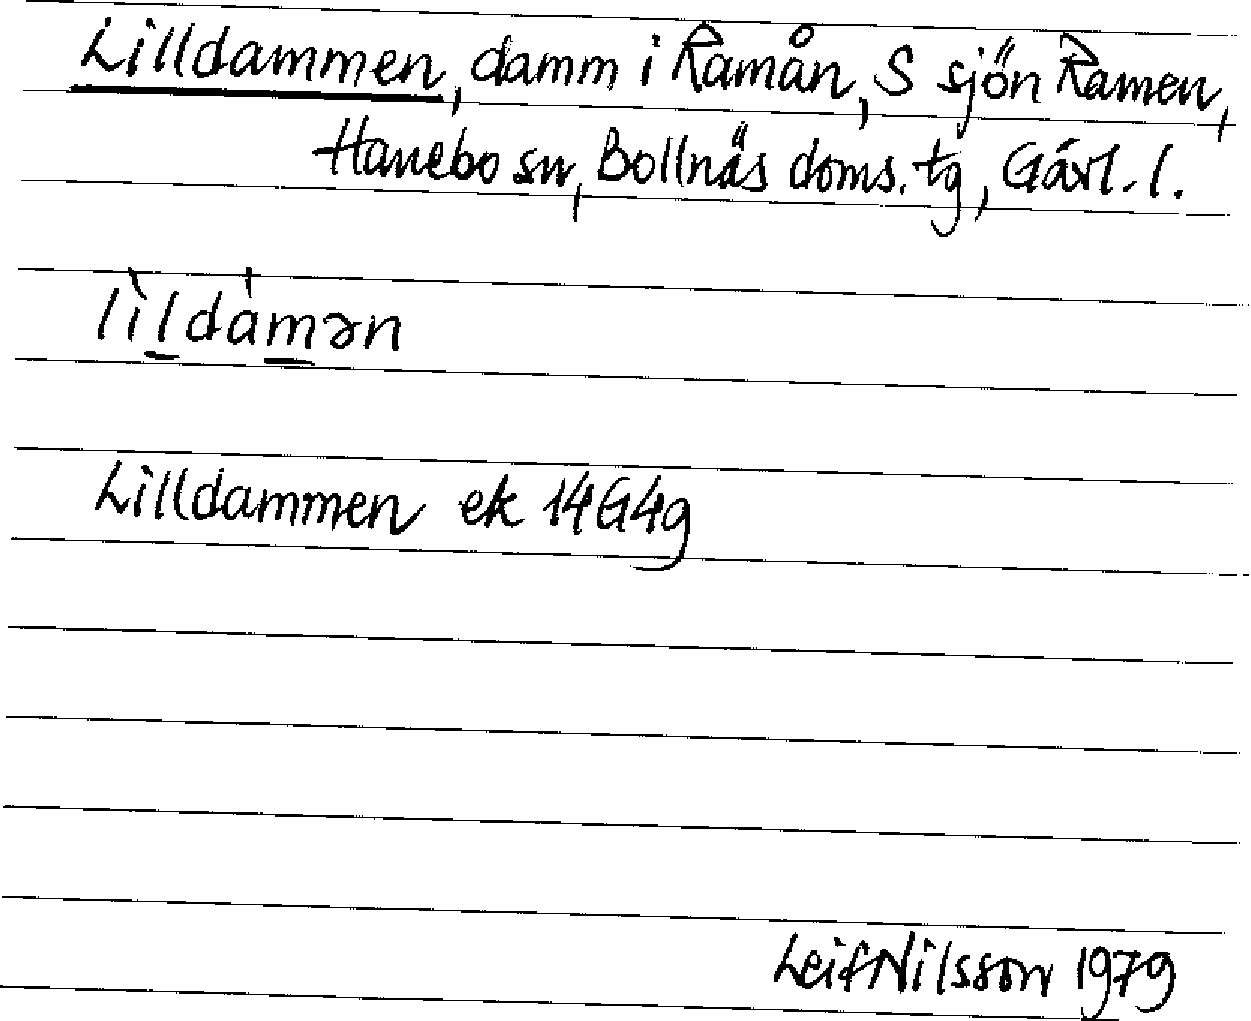 Lilldammen, damm i Ramån, S sjön Ramen,
Hanebo sn, Bollnäs doms. tg, Gävl. l.
lìldámən
Lilldammen ek 14G4g
Leif Nilsson 1979